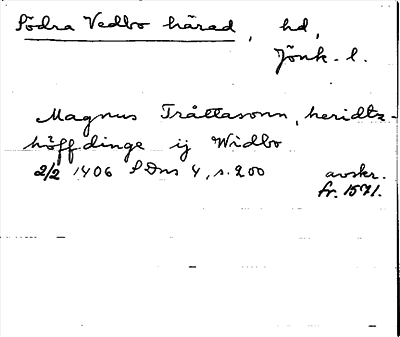 Södra Vedbo härad, hd,
Jönk. l.
Magnus Tråttasonn, heridtz-
höffdinge ij Widbo
2/2 1406 SDns 4, s. 200 avskr.
fr. 1571.